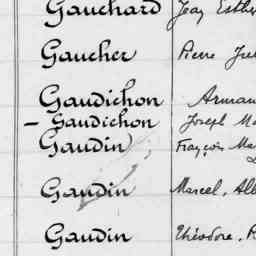 Gauchard Jean Esther
Gaucher Pierre
Gaudichon Arman
- Gaudichon Joseph Ma
Gaudin François Ma
Gaudin Marcel, Alb
Gaudin Théodore, R